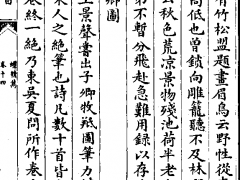 有竹松盟題畫眉烏云野性從
高低也曽鎖向雕籠聽不及林
云秋色荒凉景物殘池荷半老
第不暫分飛赴急難用録以存
鄉圃
王景聲嘗出子卿牧羝圖筆力
宋人之絶筆也詩凡數十首皆
卷終一絶乃東吳夏問所作卷
卷十四